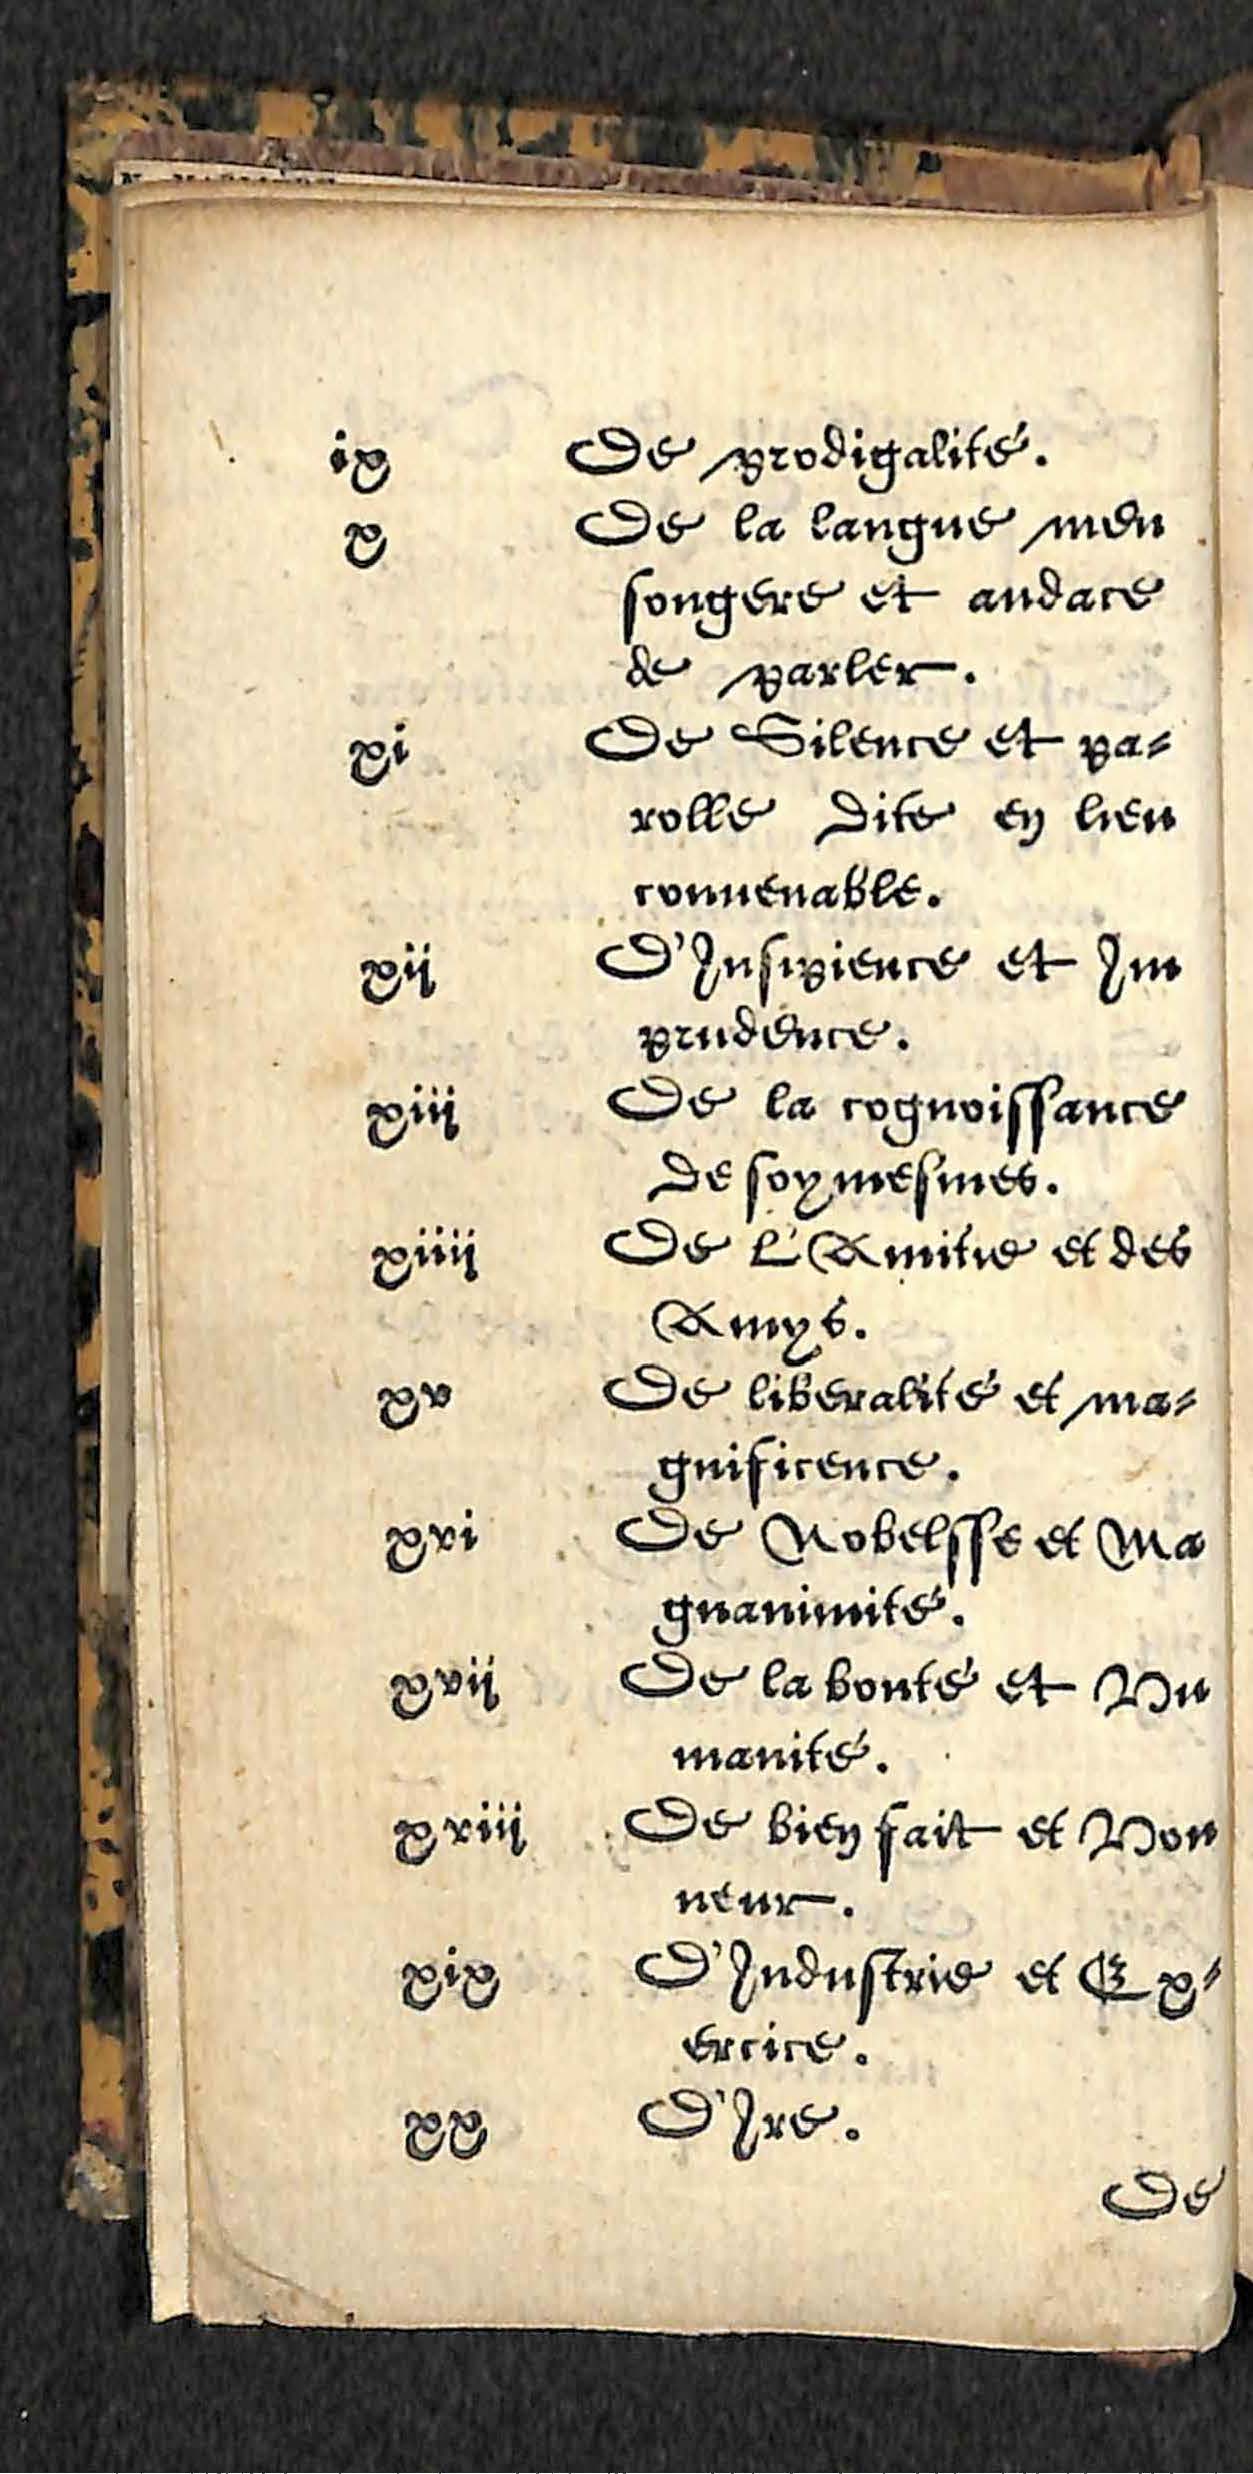 ix De prodigalité.
x De la langue men
songere et audace
de parler.
xi De Silence et pa-
rolle dite en lieu
conuenable.
xii D'Insipience et Im
prudence.
xiii De la cognoissance
de soy mesmes.
xiiii De L'Amitie et des
Amys.
xv De liberalité et ma-
gnificence.
xvi De Nobelsse et Ma
gnanimité.
xvii De la bonté et Hu
manité.
xviii De bien fait et Hon
neur.
xix D'Industrie et Ex-
ercice.
xx D'Ire.
De